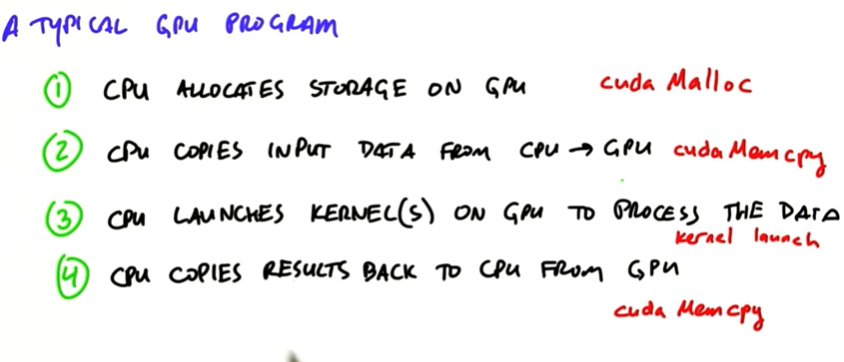 A TYPICAL GPU PROGRAM
① CPU ALLOCATES STORAGE ON GPU cuda Malloc
② CPU COPIES INPUT DATA FROM CPU → GPU cuda Memcpy
③ CPU LAUNCHES KERNEL(S) ON GPU TO PROCESS THE DATA
kernel launch
④ CPU COPIES RESULTS BACK TO CPU FROM GPU
cuda Memcpy